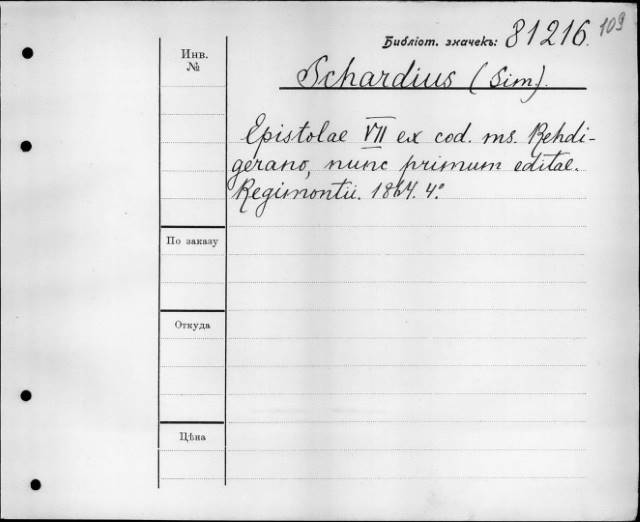 109
Библіот. значекъ: 81216.
Инв.
№
Schardius (Sim).
Epistolae VII ex cod. ms. Rehdi-
gerano, nunc primum editae.
Regimontii. 1864. 4º.
По заказу
Откуда
Цѣна